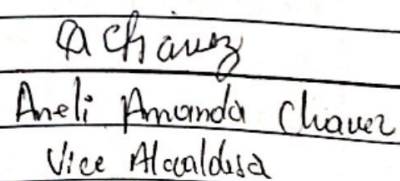 A Chávez
Aneli Amanda Chavez
Vice Alcaldesa